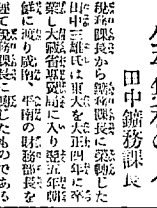 田中鑛務課長
稅務課長から鑛務課長に榮轉した
田中三雄氏は東大を大正四年に卒
業し大藏省專賣局に入り翌五年朝
鮮に渡り咸南、平南の財務部長を
經て稅務課長に轉じたものである